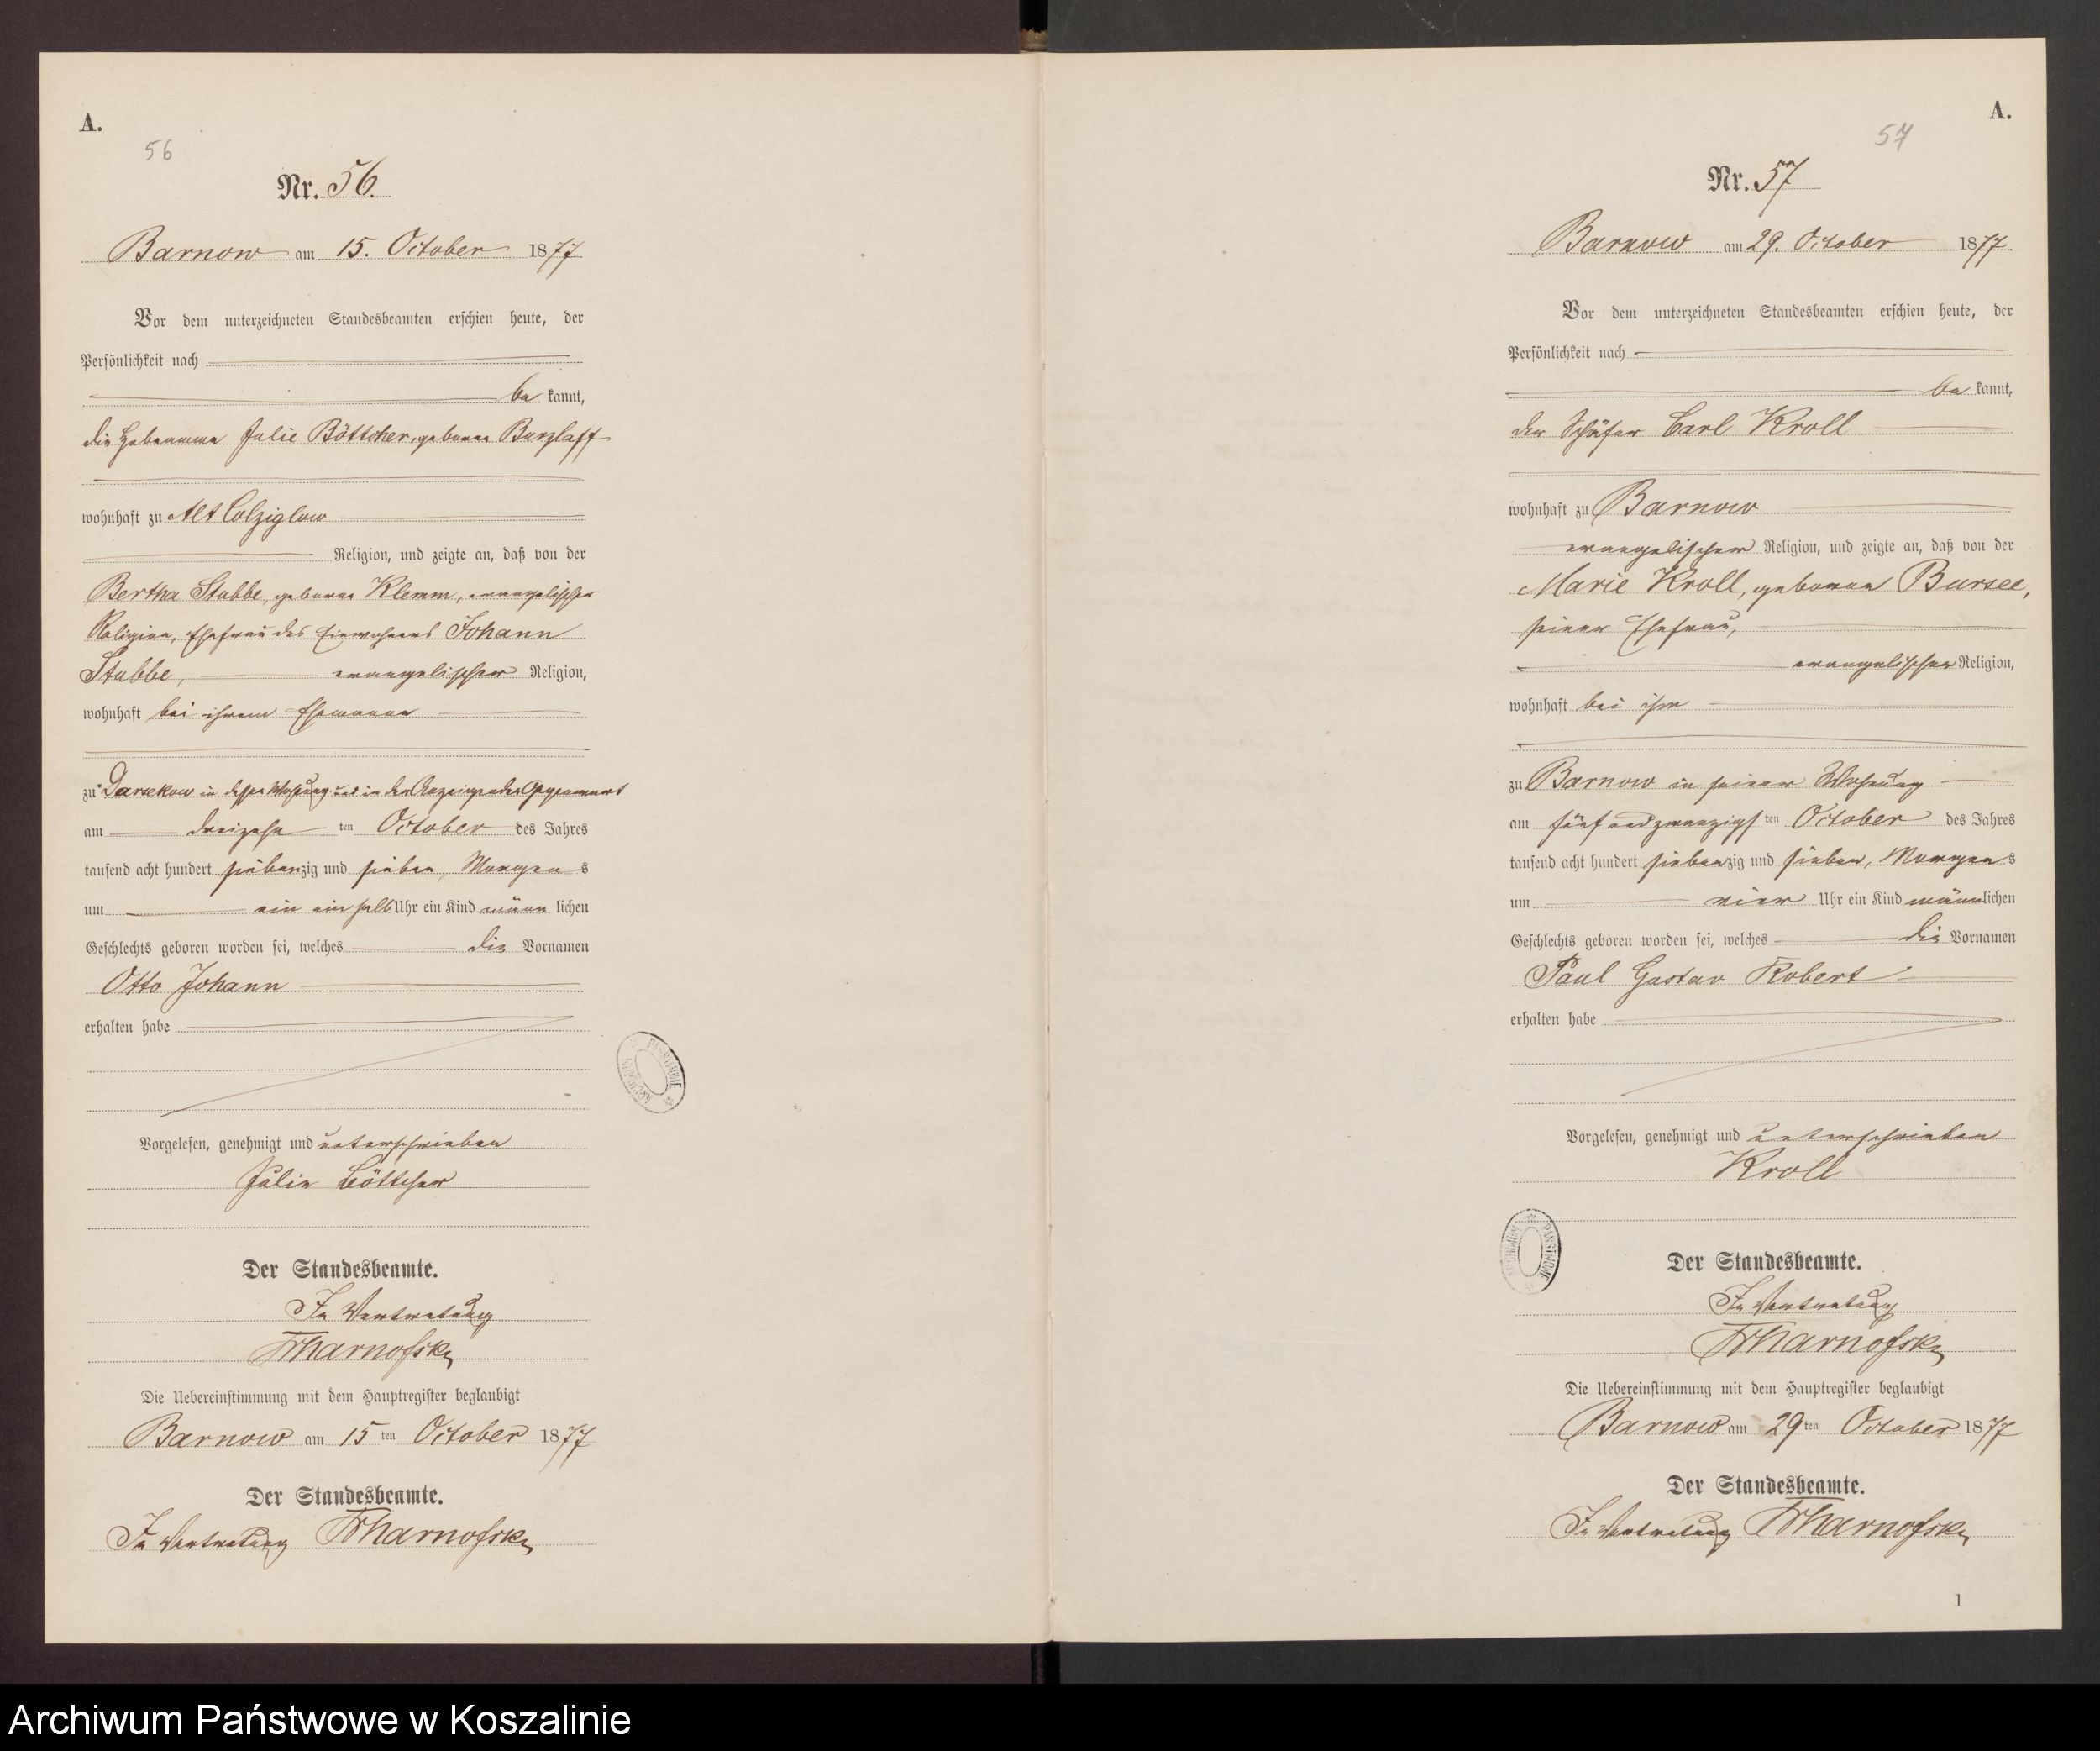 A.
56
Nr. 56.
Barnow am 15. October 1877
Vor dem unterzeichneten Standesbeamten erschien heute, der
Persönlichkeit nach
be kannt,
die Hebamme Julie Böttcher, geborne Barzlaff
wohnhaft zu Alt Colziglow
Religion, und zeigte an, daß von der
Bertha Stubbe, geborne Klemm, evangelischer
Religion, Ehefrau des Einwohners Johann
Stubbe, evangelischer Religion,
wohnhaft bei ihrem Ehemanne
zu Darsekow in dessen Wohnung und in der Anzeigenden Gegenwart
am dreizehn ten October des Jahres
tausend acht hundert siebenzig und sieben, Morgen s
um ein ein halb Uhr ein Kind männ lichen
Geschlechts geboren worden sei, welches die Vornamen
Otto Johann
erhalten habe
Vorgelesen, genehmigt und unterschrieben
Julie Böttcher
Der Standesbeamte.
In Vertretung
Die Uebereinstimmung mit dem Hauptregister beglaubigt
Barnow am 15 ten October 1877
Der Standesbeamte.
In Vertretung
ARCHIWUM PAŃSTWOWE
A.
57
Nr. 57
Barnow am 29. October 1877
Vor dem unterzeichneten Standesbeamten erschien heute, der
Persönlichkeit nach
be kannt,
der Schäfer Carl Kroll
wohnhaft zu Barnow
evangelischer Religion, und zeigte an, daß von der
Marie Kroll, geborne Bursee,
seiner Ehefrau,
evangelischer Religion,
wohnhaft bei ihm
zu Barnow in seiner Wohnung
am fünf und zwanzigs ten October des Jahres
tausend acht hundert siebenzig und sieben, Morgen s
um vier Uhr ein Kind männlichen
Geschlechts geboren worden sei, welches die Vornamen
Paul Gustav Robert
erhalten habe
Vorgelesen, genehmigt und unterschrieben
Kroll
ARCHIWUM PAŃSTWOWE
Der Standesbeamte.
In Vertretung
Die Uebereinstimmung mit dem Hauptregister beglaubigt
Barnow am 29 ten October 1877
Der Standesbeamte.
In Vertretung
1
Archiwum Państwowe w Koszalinie